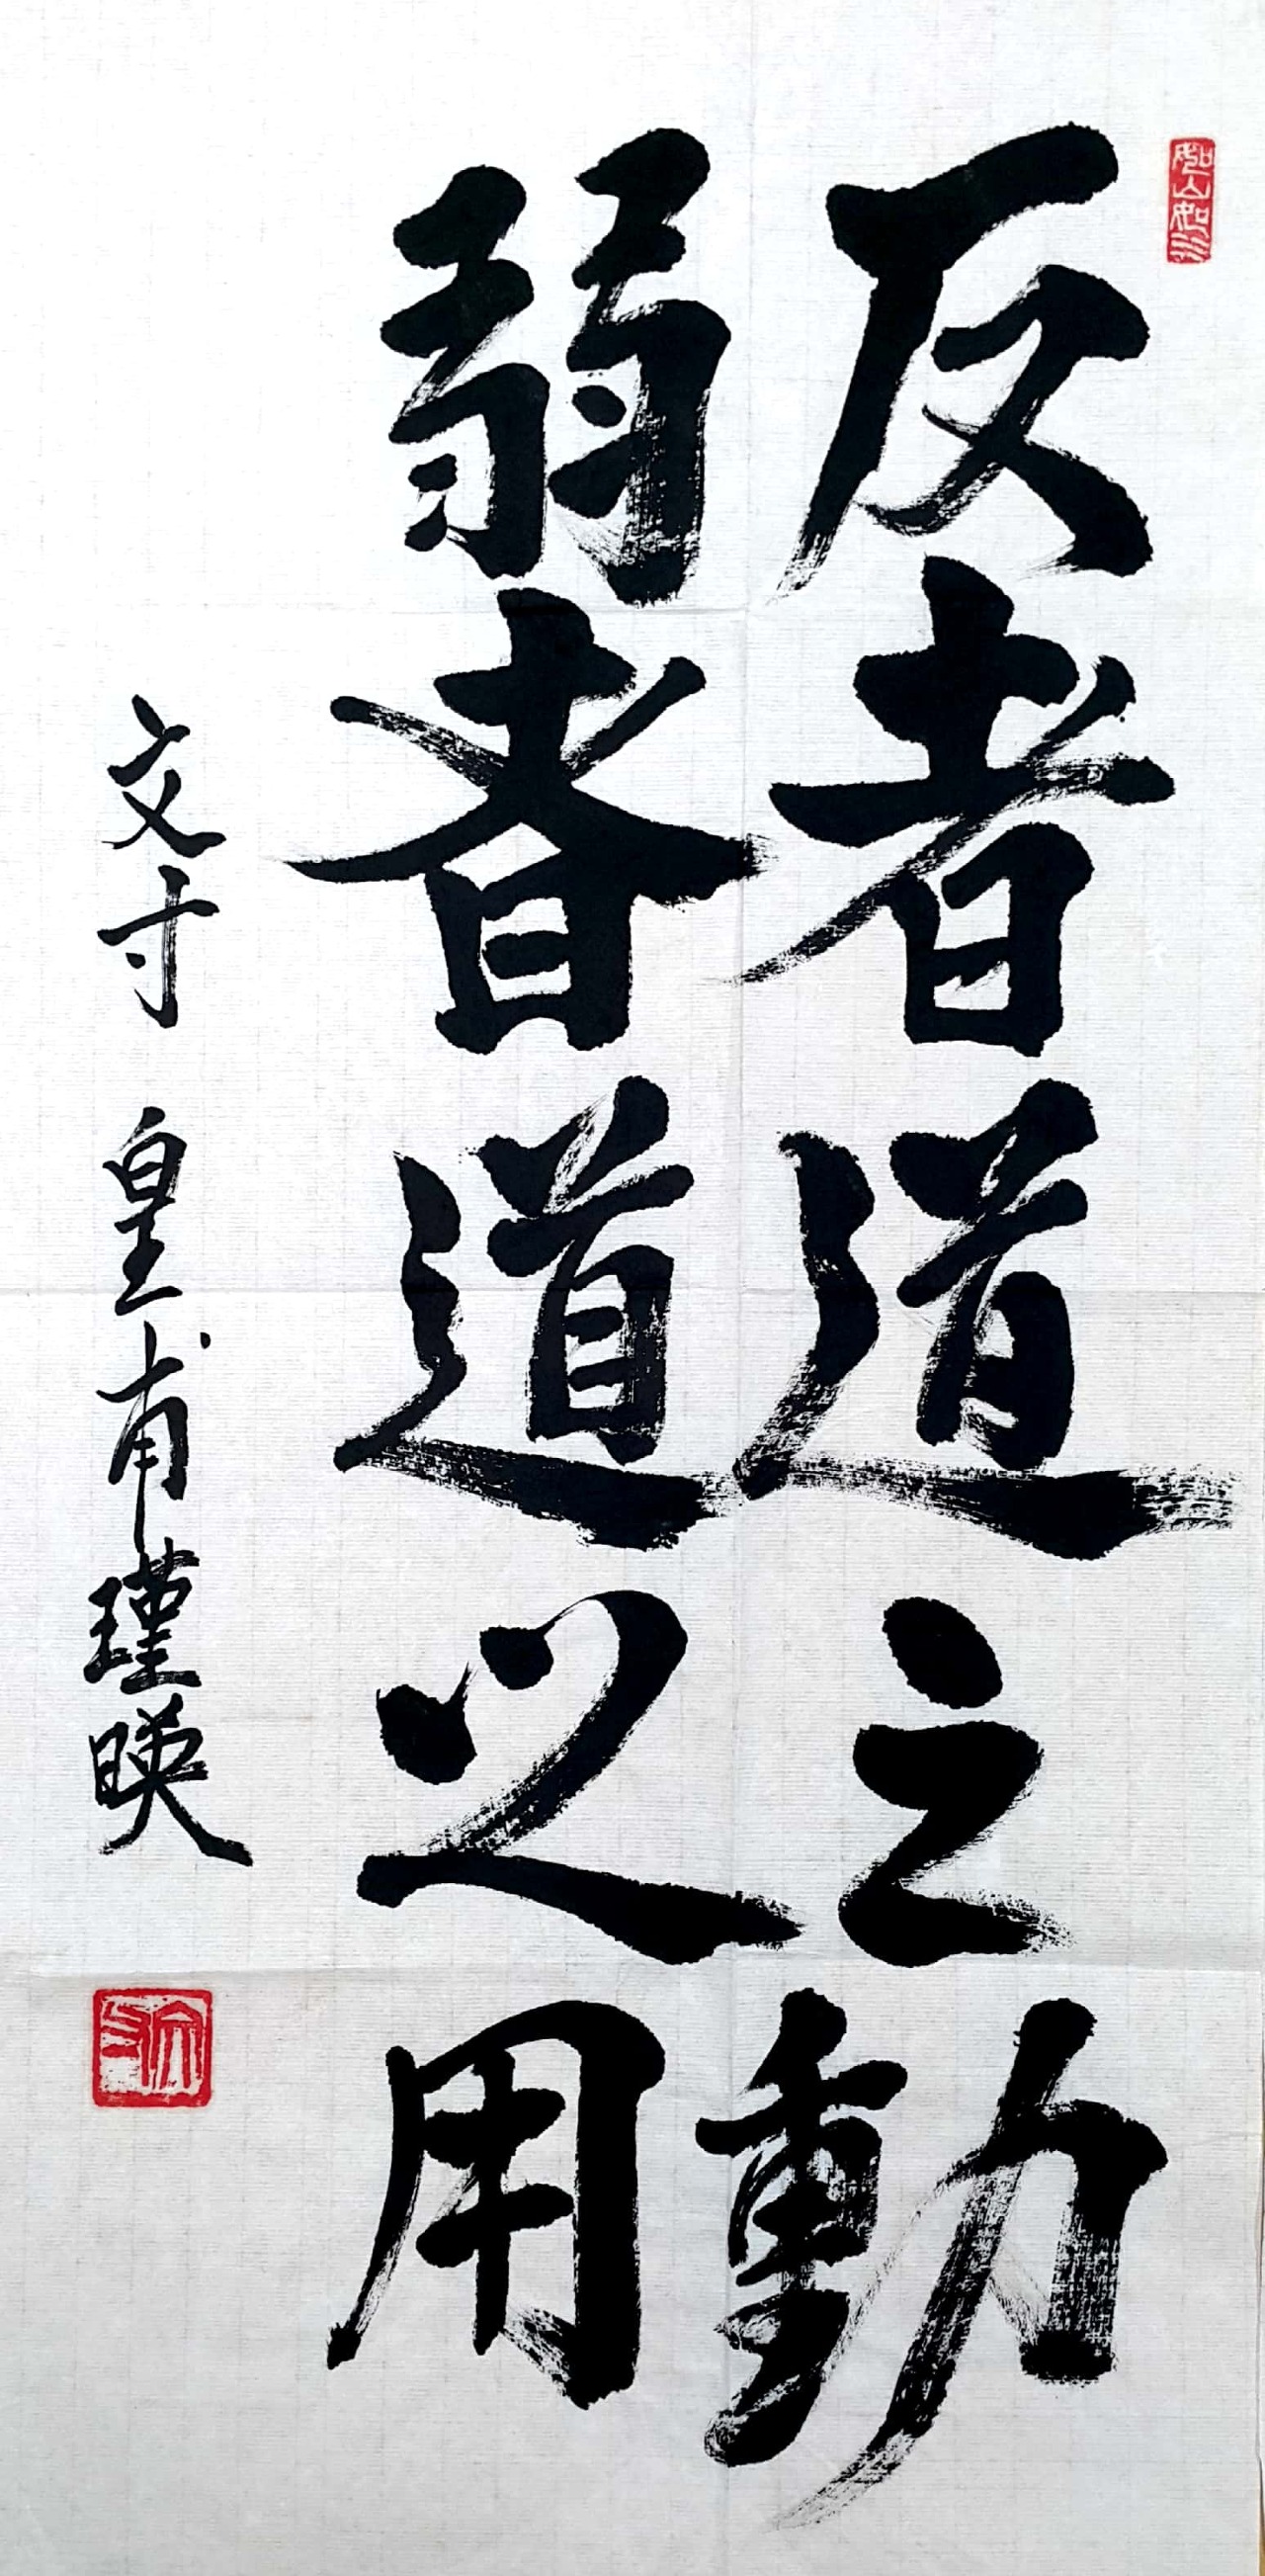 如山如水
反者道之動
弱者道之用
文寸 皇甫瑾暎